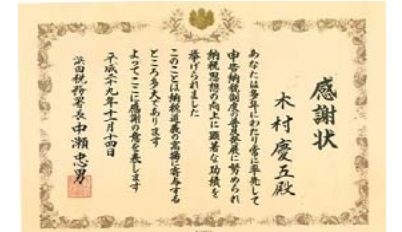 感謝状
木村慶五殿
あなたは多年にわたり常に率先して
申告納税制度の普及発展に努められ
納税思想の向上に顕著な功績を
挙げられました
このことは納税道義の高揚に寄与する
ところ多大であります
よってここに感謝の意を表します
平成二十九年十一月十四日
浜田税務署長 中瀬忠男